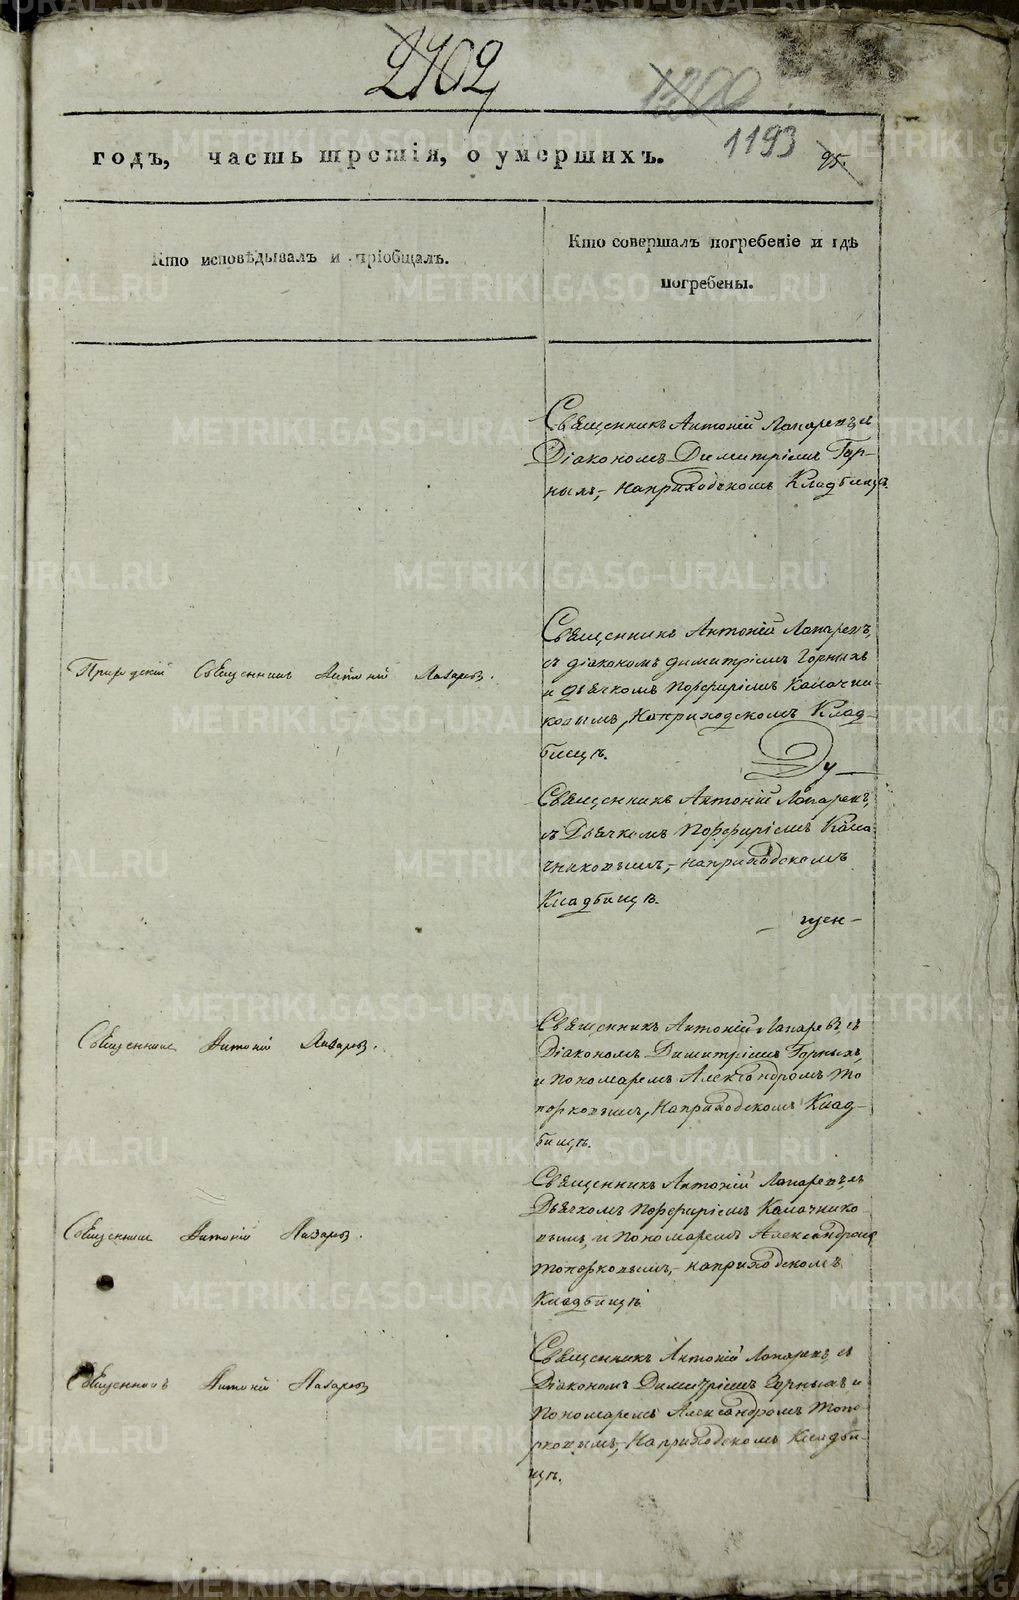 2702
1200
1193
95.
годъ, часть третія, о умершихъ.
Кто исповѣдывалъ и пріобщалъ.
Кто совершалъ погребеніе и гдѣ
погребены.
Священникъ Антоній Лапаревъ, съ
Діакономъ Димитріемъ Гор-
ныхъ, на приходскомъ Кладбищѣ.
Священникъ Антоній Лапаревъ,
съ діакономъ Димитріемъ Горныхъ
и дьячкомъ Порфиріемъ Калачни-
ковымъ, На приходскомъ Клад-
бищѣ.
Приходскій Священникъ Антоній Лапаревъ.
Ду-
Священникъ Антоній Лапаревъ,
съ Дьячкомъ Порфиріемъ Кала-
чниковымъ, на приходскомъ
Кладбищѣ.
щен-
Священникъ Антоній Лапаревъ.
Священникъ Антоній Лапаревъ съ
Діакономъ Димитріемъ Горныхъ,
и пономаремъ Александромъ То-
порковымъ, На приходскомъ Клад-
бищѣ.
Священникъ Антоній Лапаревъ.
Священникъ Антоній Лапаревъ, съ
Дьячкомъ Порфиріемъ Калачнико-
вымъ, и пономаремъ Александромъ
Топорковымъ, на приходскомъ
Кладбищѣ.
Священникъ Антоній Лапаревъ
Священникъ Антоній Лапаревъ, съ
Діакономъ Димитріемъ Горныхъ и
Пономаремъ Александромъ Топо-
рковымъ, На приходскомъ Кладби-
щѣ.
METRIKI.GASO-URAL.RU